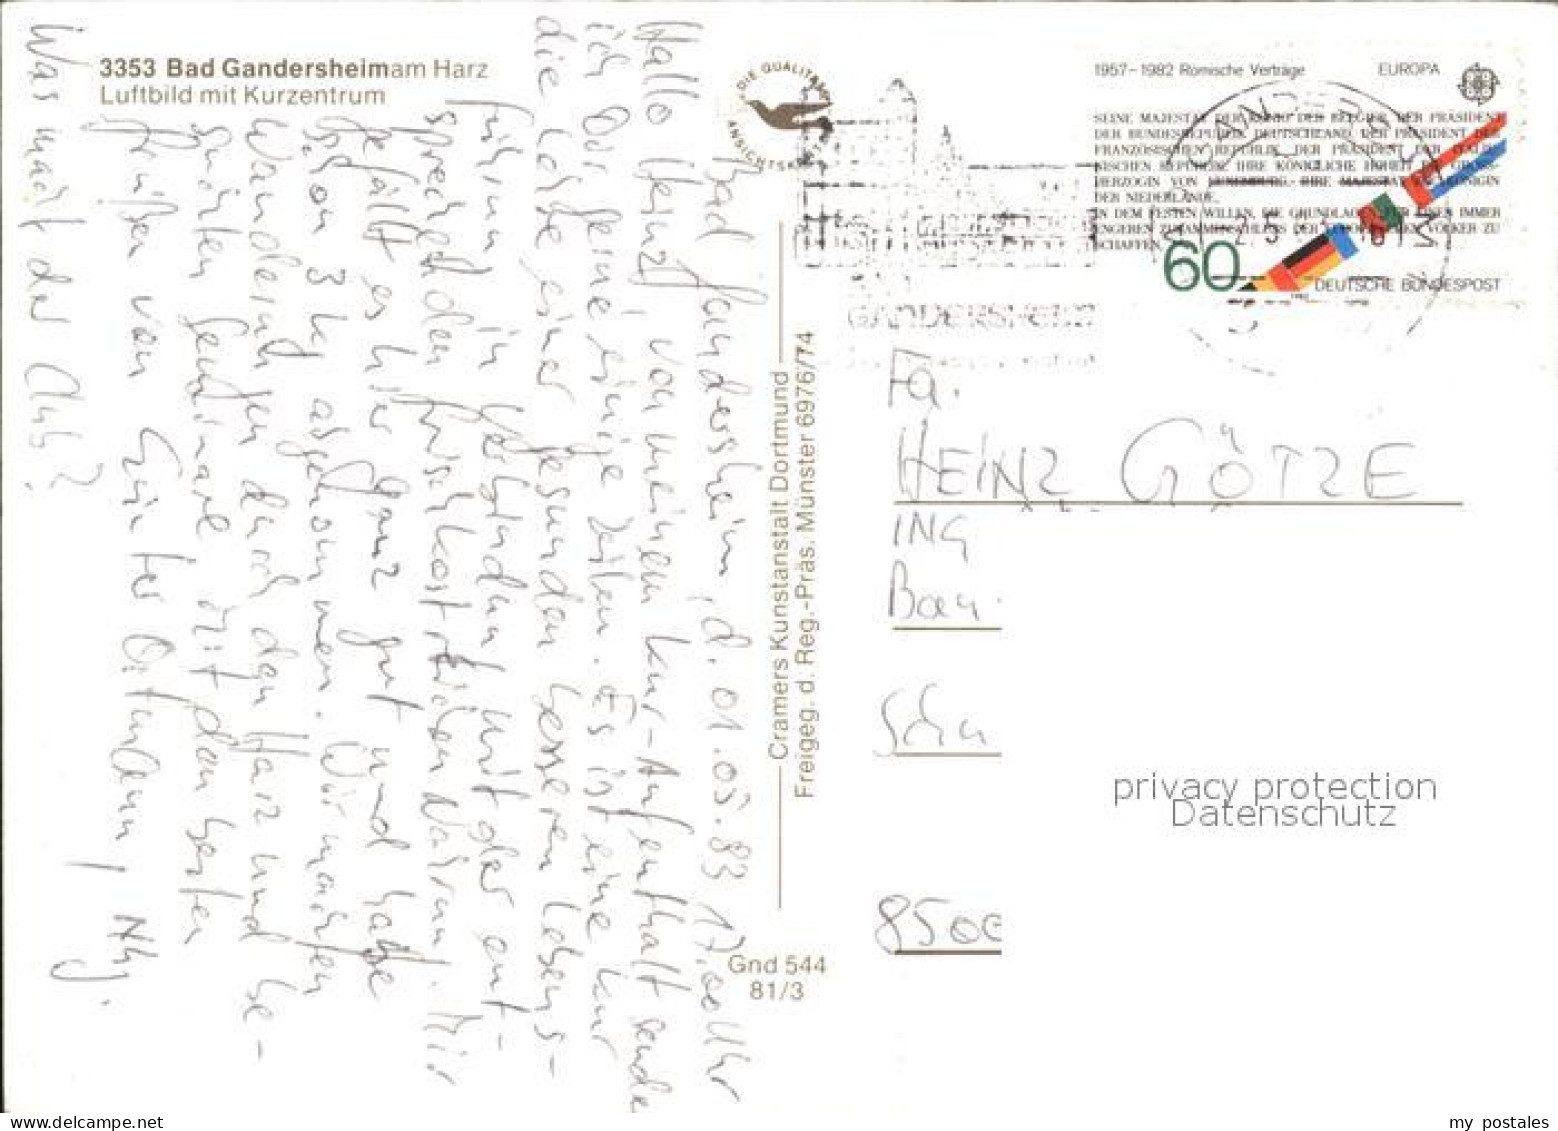 3353 Bad Gandersheim am Harz
Luftbild mit Kurzentrum
DIE QUALITÄTS
ANSICHTSKARTE
1957–1982 Römische Verträge EUROPA
SEINE MAJESTÄT DER KÖNIG DER BELGIER, DER PRÄSIDENT
DER BUNDESREPUBLIK DEUTSCHLAND, DER PRÄSIDENT DER
FRANZÖSISCHEN REPUBLIK, DER PRÄSIDENT DER ITALIE-
NISCHEN REPUBLIK, IHRE KÖNIGLICHE HOHEIT DIE GROSS-
HERZOGIN VON LUXEMBURG, IHRE MAJESTÄT DIE KÖNIGIN
DER NIEDERLANDE,
IN DEM FESTEN WILLEN, DIE GRUNDLAGEN FÜR EINEN IMMER
ENGEREN ZUSAMMENSCHLUSS DER EUROPÄISCHEN VÖLKER ZU
SCHAFFEN
60
DEUTSCHE BUNDESPOST
1982
GANDERSHEIM
Bad Gandersheim, d. 01.05.83 17.00 Uhr
Hallo Heinz, von meinem Kur-Aufenthalt sende
ich Dir feine einige Zeilen. Es ist eine Kur
die Lotse einer gesunden besseren Lebens-
führung in Verbindung mit der ent-
sprechenden frischkostreichen Nahrung. Mir
gefällt es hier ganz gut und habe
schon 3 kg abgenommen. Wir machen
Wanderungen durch den Harz und be-
suchen Seminare. Mit den besten
Grüßen von Günter Ortmann, Nbg.
Was macht der Club?
Cramers Kunstanstalt Dortmund
Freigeg. d. Reg.-Präs. Münster 6976/74
Gnd 544
81/3
Fa.
HEINZ GÖTZE
ING
Bau
Schu
8500
privacy protection
Datenschutz
my postales
www.delcampe.net